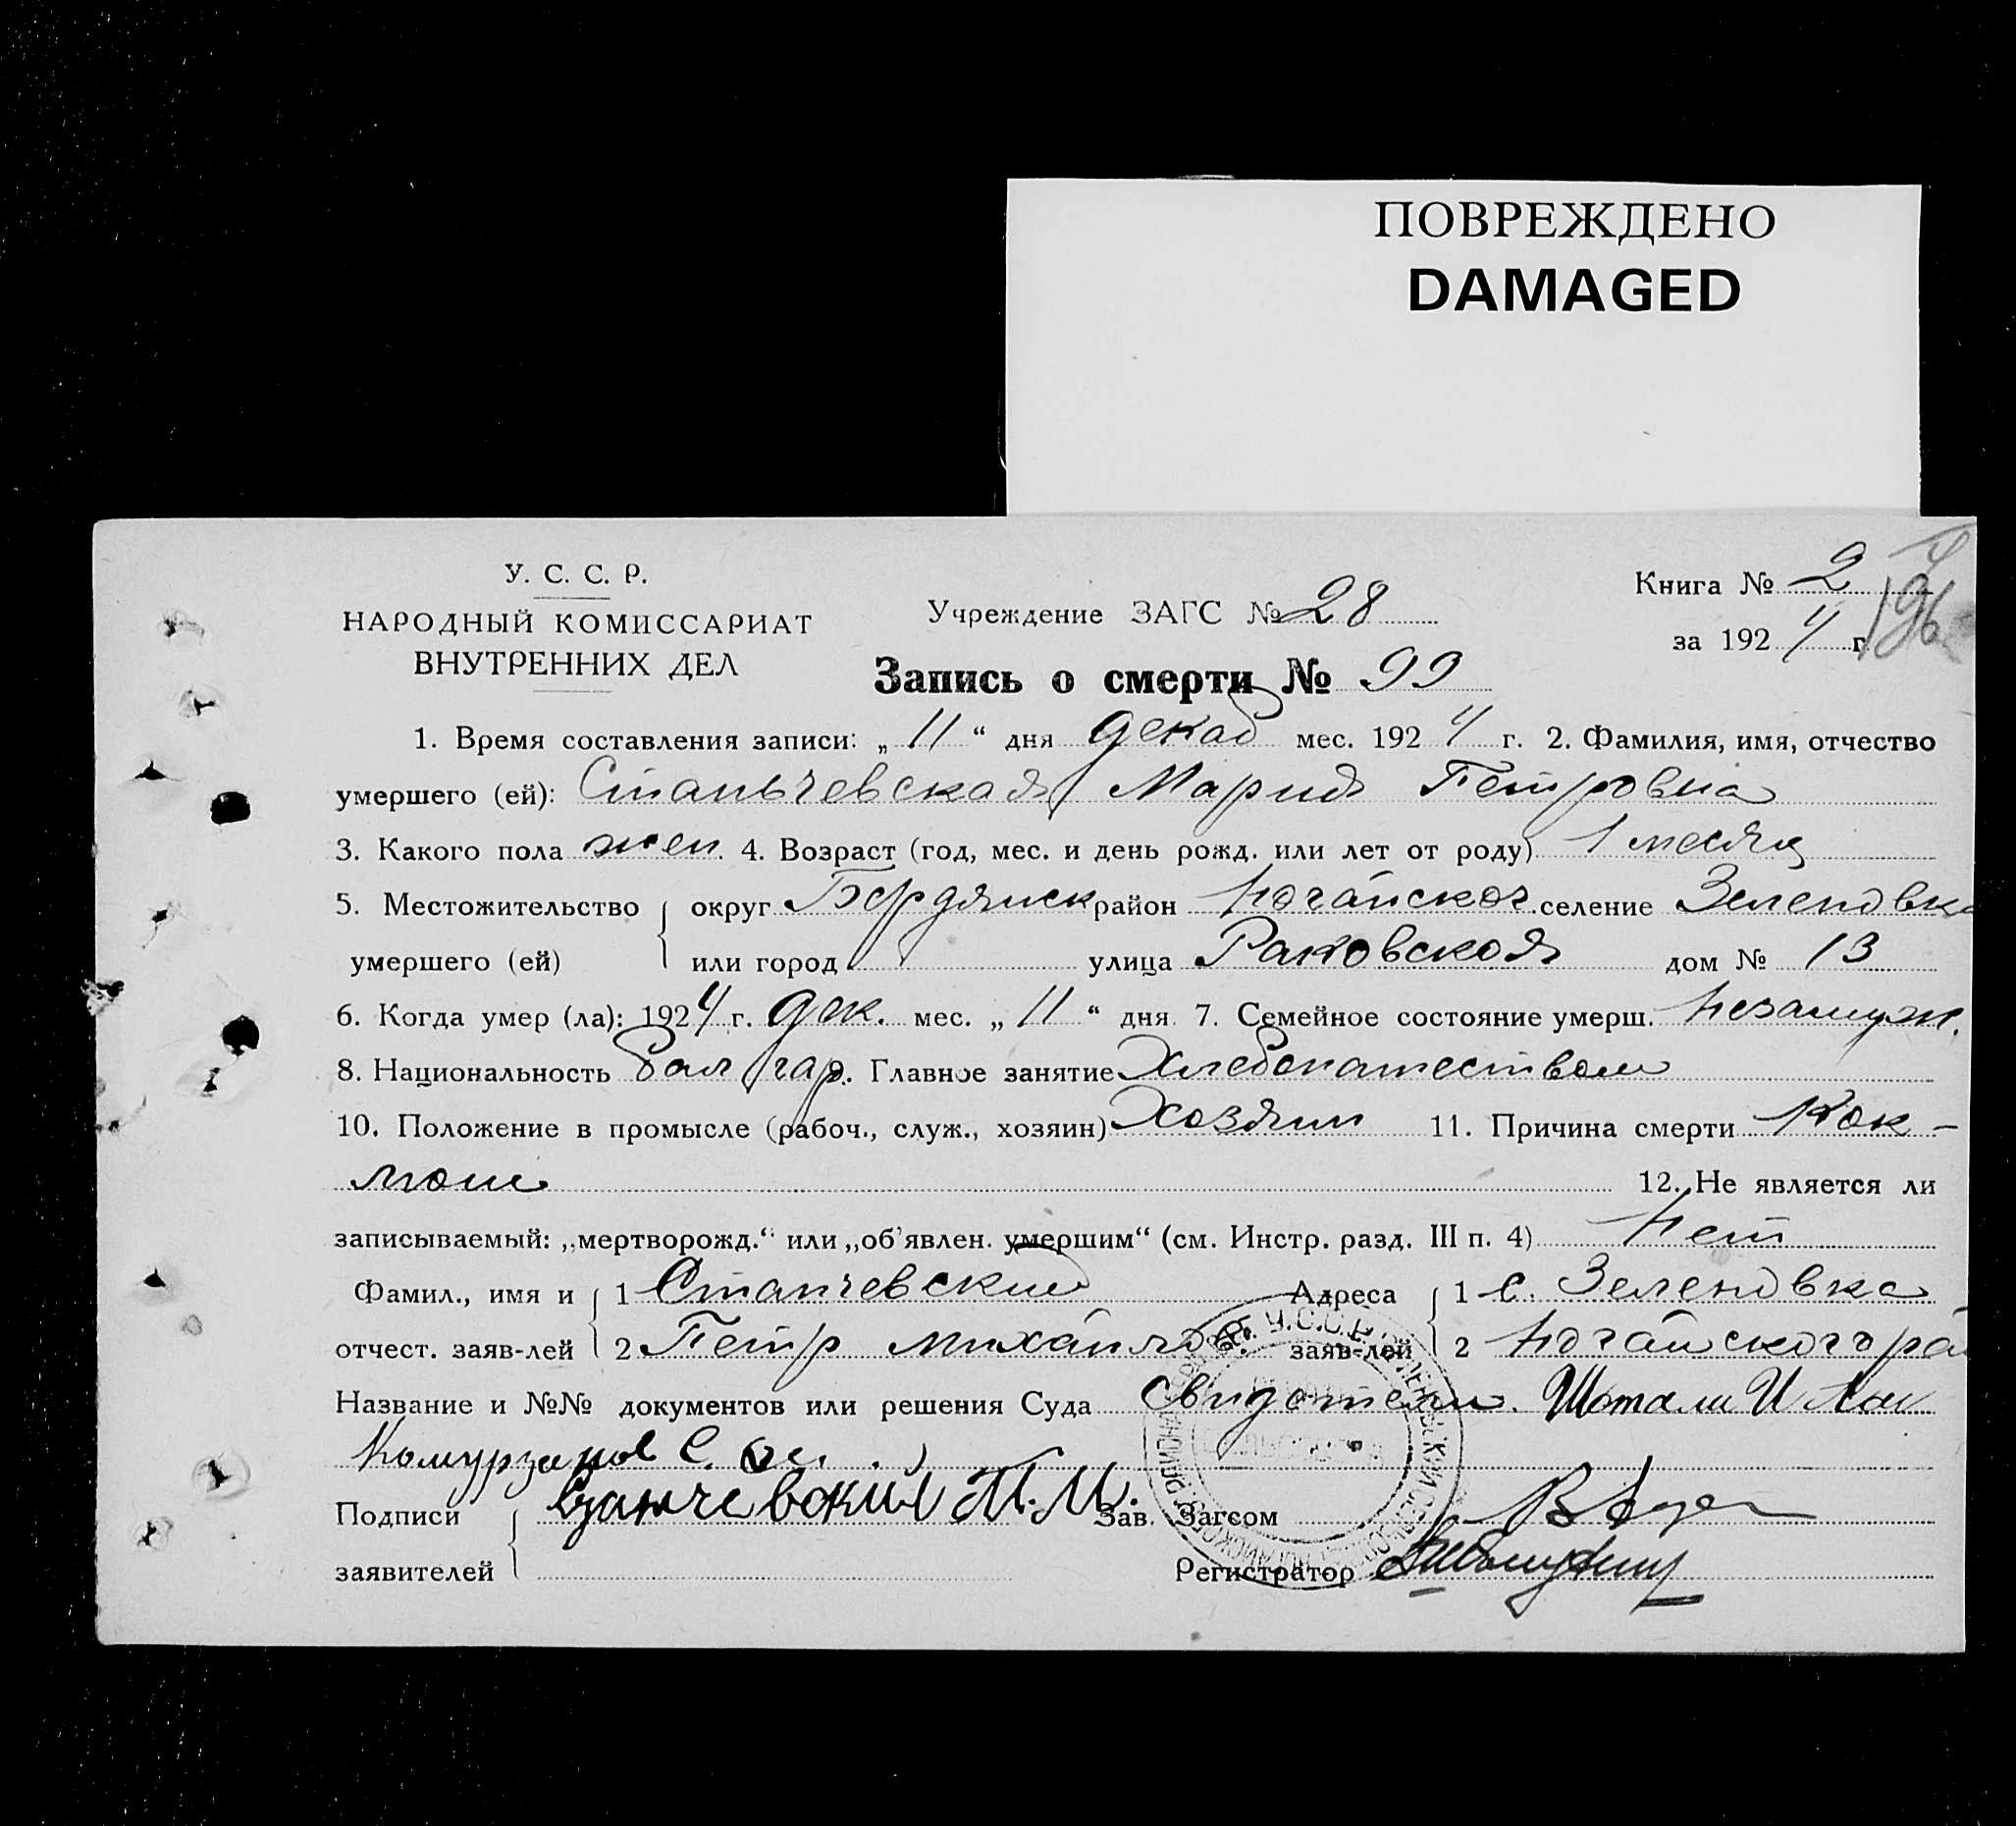 ПОВРЕЖДЕНО
DAMAGED
У. С. С. Р.
НАРОДНЫЙ КОМИССАРИАТ
ВНУТРЕННИХ ДЕЛ
Учреждение ЗАГС № 28
Книга № 2
за 1924 г.
196
Запись о смерти № 99
1. Время составления записи: „ 11 “ дня декаб мес. 1924 г. 2. Фамилия, имя, отчество
умершего (ей): Станьчевская Мария Петровна
3. Какого пола жен. 4. Возраст (год, мес. и день рожд. или лет от роду) 1 месяц
5. Местожительство округ Бердянск район Ногайског. селение Зеленовка
умершего (ей) или город улица Раковская дом № 13
6. Когда умер (ла): 1924 г. дек. мес. „ 11 “ дня 7. Семейное состояние умерш. Незамуж.
8. Национальность болгар. Главное занятие Хлебопашеством
10. Положение в промысле (рабоч., служ., хозяин) Хозяин 11. Причина смерти Кок-
люш 12. Не является ли
записываемый: „мертворожд.“ или „об'явлен. умершим“ (см. Инстр. разд. III п. 4) Нет
Фамил., имя и 1 Станчевский Адреса 1 с. Зеленовка
отчест. заяв-лей 2 Петр Михайлов. заяв-лей 2 Ногайского рай
Название и №№ документов или решения Суда Свидетели.
С.
Подписи Станчевский П. М. Зав. Загсом
заявителей Регистратор